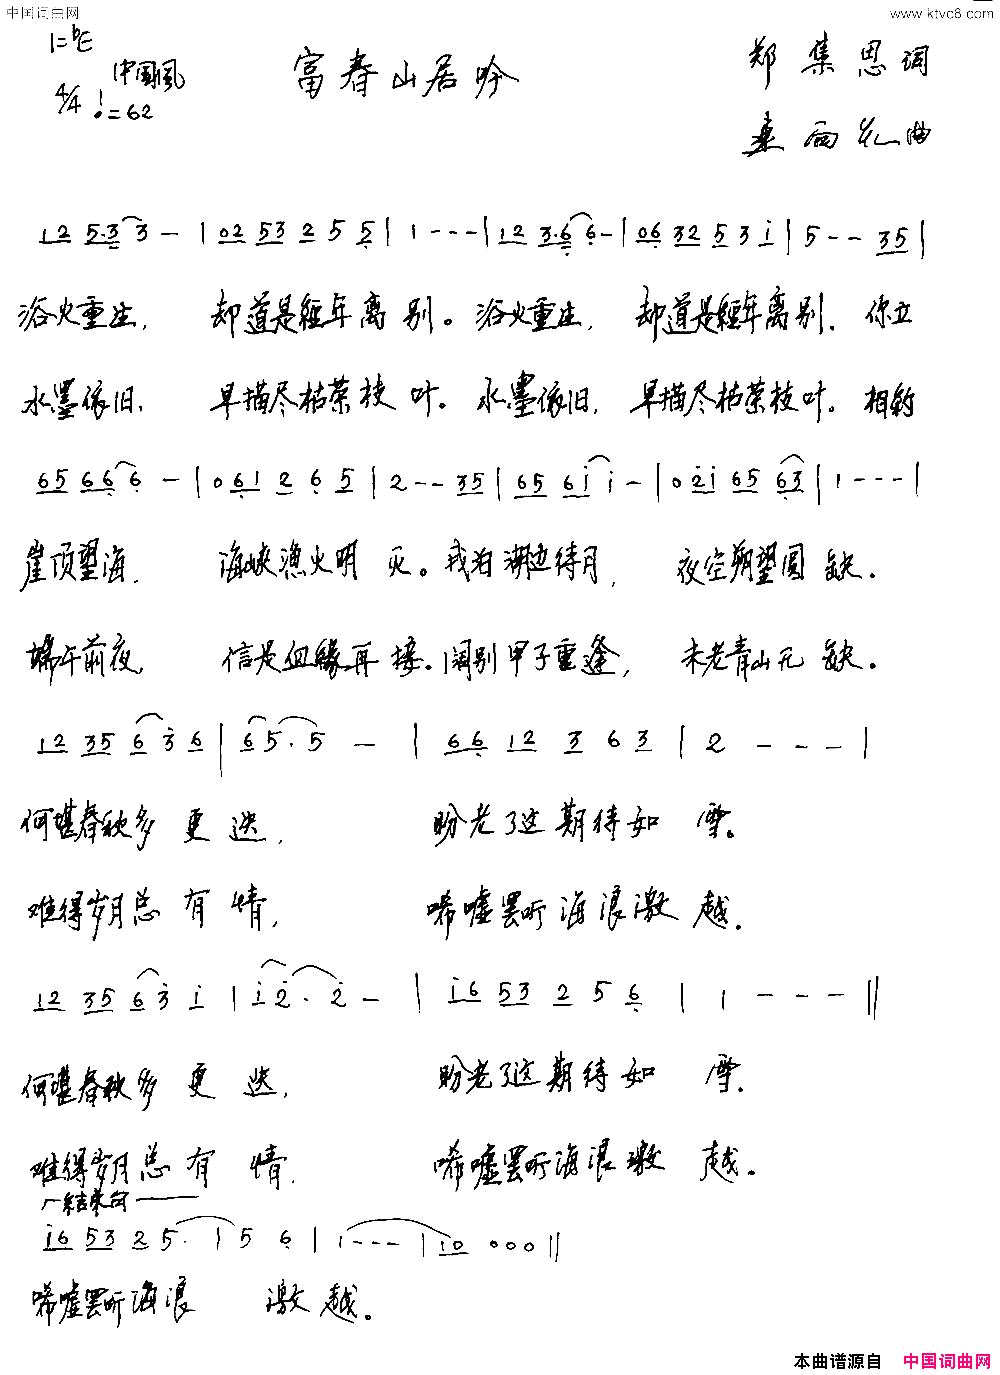 中国词曲网
www.ktvc8.com
1=♭E
中国风
4/4 ♩=62
富春山居吟
郑集恩词
桑雨花曲
12 5·3 3 - | 02 53 2 5 5 | 1 - - - | 12 3·6 6 - | 06 32 5 3 i | 5 - - 35 |
浴火重生, 却道是經年离别。浴火重生, 却道是經年离别. 你立
水墨依旧, 早描尽枯荣枝叶。水墨依旧, 早描尽枯荣枝叶。相约
65 66 6 - | 0 61 2 6 5 | 2 - - 35 | 65 6i i - | 0 2i 65 63 | 1 - - - |
崖顶望海, 海峡渔火明灭。我泊湖边待月, 夜空朔望圆缺.
端午前夜, 信是血緣再接.阔别甲子重逢, 未老青山无缺.
12 35 6 3 6 | 6 5 · 5 - | 66 12 3 6 3 | 2 - - - |
何堪春秋多更迭, 盼老了这期待如雪。
难得岁月总有情, 唏嘘罢听海浪激越.
12 35 6 3 i | i 2 · 2 - | i6 53 2 5 6 | 1 - - - ‖
何堪春秋多更迭, 盼老了这期待如雪.
难得岁月总有情, 唏嘘罢听海浪激越。
结束句
i6 53 2 5 · | 5 6 | 1 - - - | 10 0 0 0 ‖
唏嘘罢听海浪激越。
本曲谱源自 中国词曲网